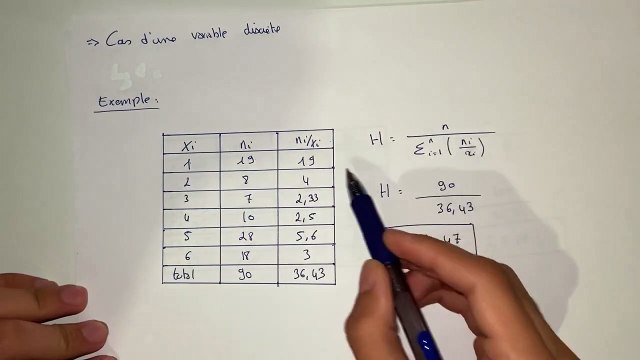 ⇒ Cas d'une variable discrète
Exemple :
xi ni ni/xi
1 19 19
2 8 4
3 7 2,33
4 10 2,5
5 28 5,6
6 18 3
total 90 36,43
H = n / Σ i=1 n ( ni / xi )
H = 90 / 36,43
47